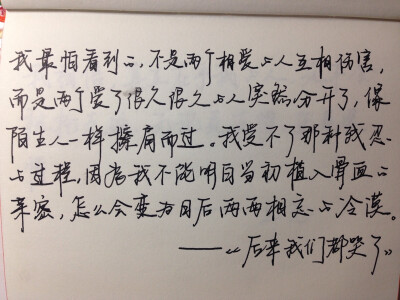 我最怕看到的，不是两个相爱的人互相伤害，
而是两个爱了很久很久的人突然分开了，像
陌生人一样擦肩而过。我受不了那种残忍
的过程，因为我不能明白当初植入骨血的
亲密，怎么会变为日后两两相忘的冷漠。
——“后来我们都哭了”